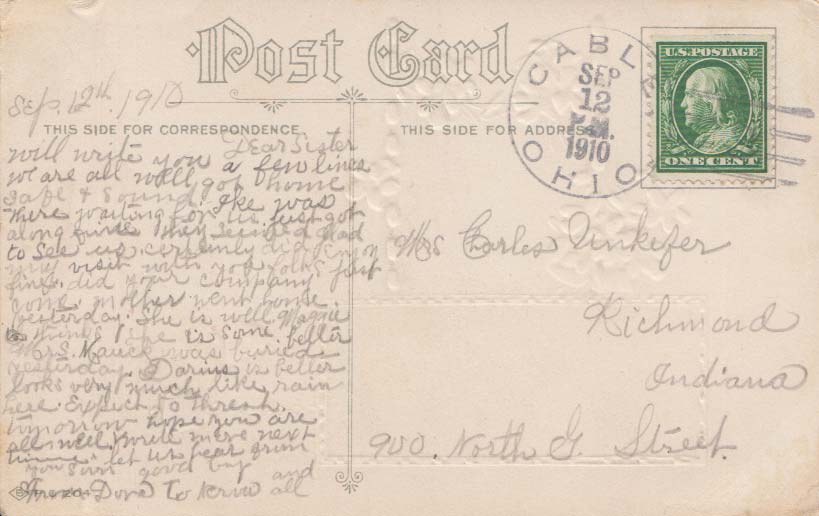 Post Card
CABLE
SEP
12
M.
1910
OHIO
U.S. POSTAGE
ONE CENT
Sep. 12th. 1910
THIS SIDE FOR CORRESPONDENCE
THIS SIDE FOR ADDRESS
Dear Sister
will write you a few lines
we are all well got home
safe & sound. Ike was
there waiting for us just got
along fine they seemed glad
to see us. certainly did enjoy
my visit with you folks just
fine. did your company
come. Mother went home
yesterday. She is well Maggie
thinks she is some better
Mrs. Mauck was buried
yesterday. Darius is better
looks very much like rain
here. Expect to thresh
tomorrow hope you are
all well. write more next
time. let us hear from
you soon good by and
From Dora To all
Mrs Charles Unkefer
Richmond
Indiana
900. North G. Street.